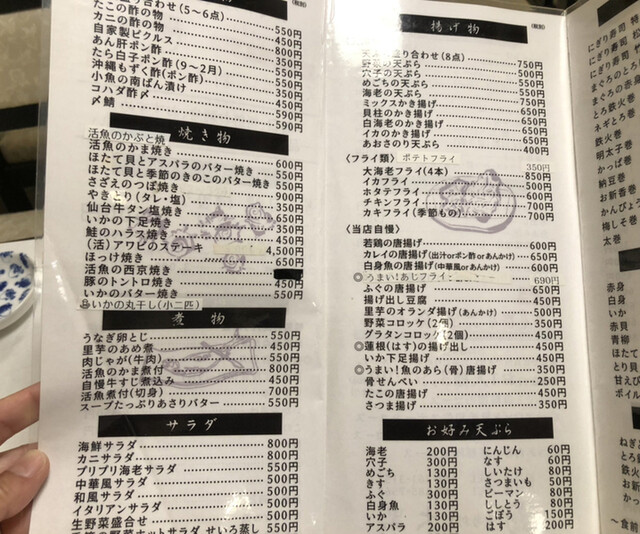 合わせ(5〜6点)
たこの酢の物 550円
カニの酢の物 550円
自家製ピクルス 450円
あん肝ポン酢 800円
たら白子ポン酢(9〜2月)
沖縄もずく酢(ポン酢) 350円
小魚の南ばん漬け 450円
コハダ酢〆 590円
〆鯖 590円
焼き物
活魚のかぶと焼
活魚のかま焼き
ほたて貝とアスパラのバター焼き 600円
ほたて貝と季節のきのこのバター焼き 550円
さざえのつぼ焼き 550円
やきとり(タレ・塩) 900円
仙台牛タン塩焼き 350円
いかの下足焼き
鮭のハラス焼き 350円
(活)アワビのステーキ 450円
ほっけ焼き 4,500円
活魚の西京焼き 650円
豚のトントロ焼き 450円
いかのバター焼き 550円
いかの丸干し(小二匹)
煮物
うなぎ卵とじ 550円
里芋のあめ煮 450円
肉じゃが(牛肉) 550円
活魚のかま煮付 800円
自慢牛すじ煮込み 450円
活魚煮付(切身) 700円
スープたっぷりあさりバター 550円
サラダ
海鮮サラダ 800円
カニサラダ 800円
プリプリ海老サラダ 550円
中華風サラダ 550円
和風サラダ 450円
イタリアンサラダ 550円
生野菜盛合せ 550円
揚げ物
(税別)
合わせ(8点)
野菜の天ぷら 750円
穴子の天ぷら 500円
めごちの天ぷら
海老の天ぷら
ミックスかき揚げ 750円
貝柱のかき揚げ 650円
白海老のかき揚げ 650円
イカのかき揚げ 650円
あおさのり天ぷら 400円
〈フライ類〉 ポテトフライ 350円
大海老フライ(4本) 850円
イカフライ 500円
ホタテフライ 700円
チキンフライ 700円
カキフライ(季節もの) 700円
〈当店自慢〉
若鶏の唐揚げ 600円
カレイの唐揚げ(出汁orポン酢orあんかけ) 650円
白身魚の唐揚げ(中華風orあんかけ) 600円
◎うまい!あじフライ 690円
ふぐの唐揚げ 650円
揚げ出し豆腐 450円
里芋のオランダ揚げ(あんかけ) 500円
野菜コロッケ(2個) 350円
グラタンコロッケ(2個) 450円
◎蓮根(はす)の揚げ出し 450円
いか下足揚げ 450円
◎うまい!魚のあら(骨)唐揚げ 350円
骨せんべい 250円
たこの唐揚げ 450円
さつま揚げ 350円
お好み天ぷら
海老 200円 にんじん 60円
穴子 300円 なす 60円
めごち 130円 しいたけ 80円
きす 130円 さつまいも 50円
ふぐ 300円 ピーマン 80円
白身魚 130円 ししとう 80円
いか 130円 ごぼう 50円
アスパラ 200円 はす 200円
にぎり寿司
にぎり寿司 松
まぐろのとろ
まぐろの赤
とろ鉄火巻
ネギとろ巻
鉄火巻
明太子巻
かっぱ巻
納豆巻
お新香巻
かんぴょう
梅しそ巻
太巻
赤身
白身
いか
赤貝
青柳
とり貝
甘えび
ボイル
ねぎと
とろ鉄
鉄火
新
お新
かっ
〜食前